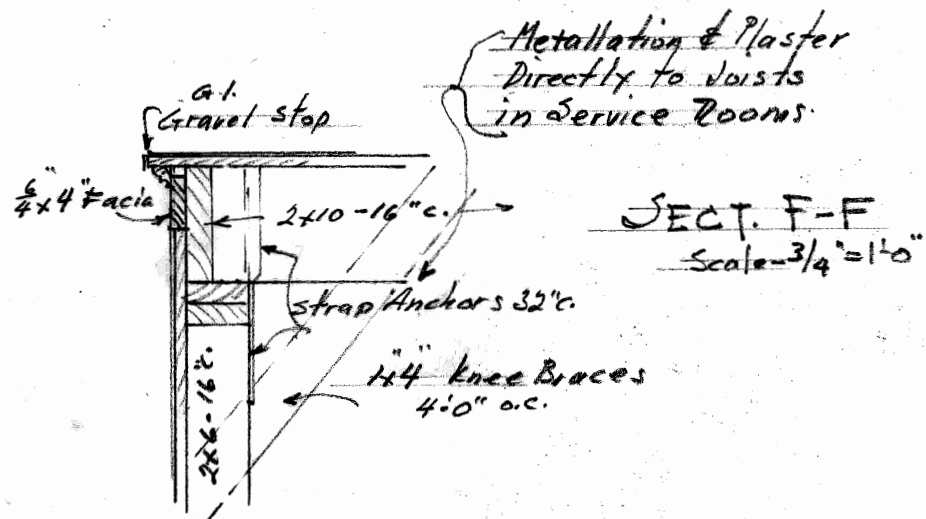 Metallation & Plaster
Directly to Joists
in Service Rooms.
G.I.
Gravel Stop
6/4 x 4" Facia
2x10-16"c.
SECT. F-F
Scale-3/4"=1'-0"
Strap Anchors 32"c.
4"x4" Knee Braces
4'-0" o.c.
2x6-16"c.